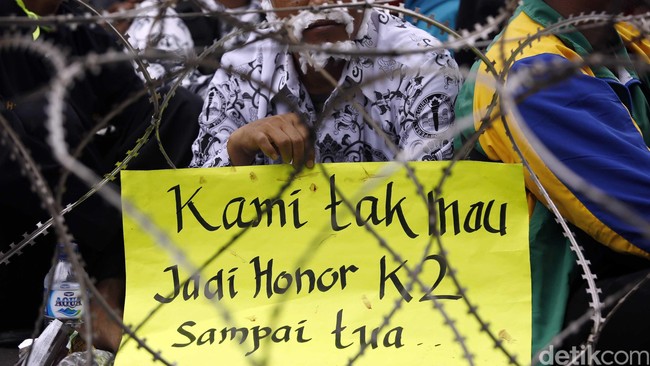 Kami tak mau
Jadi Honor K2
Sampai tua..
AQUA
detikcom